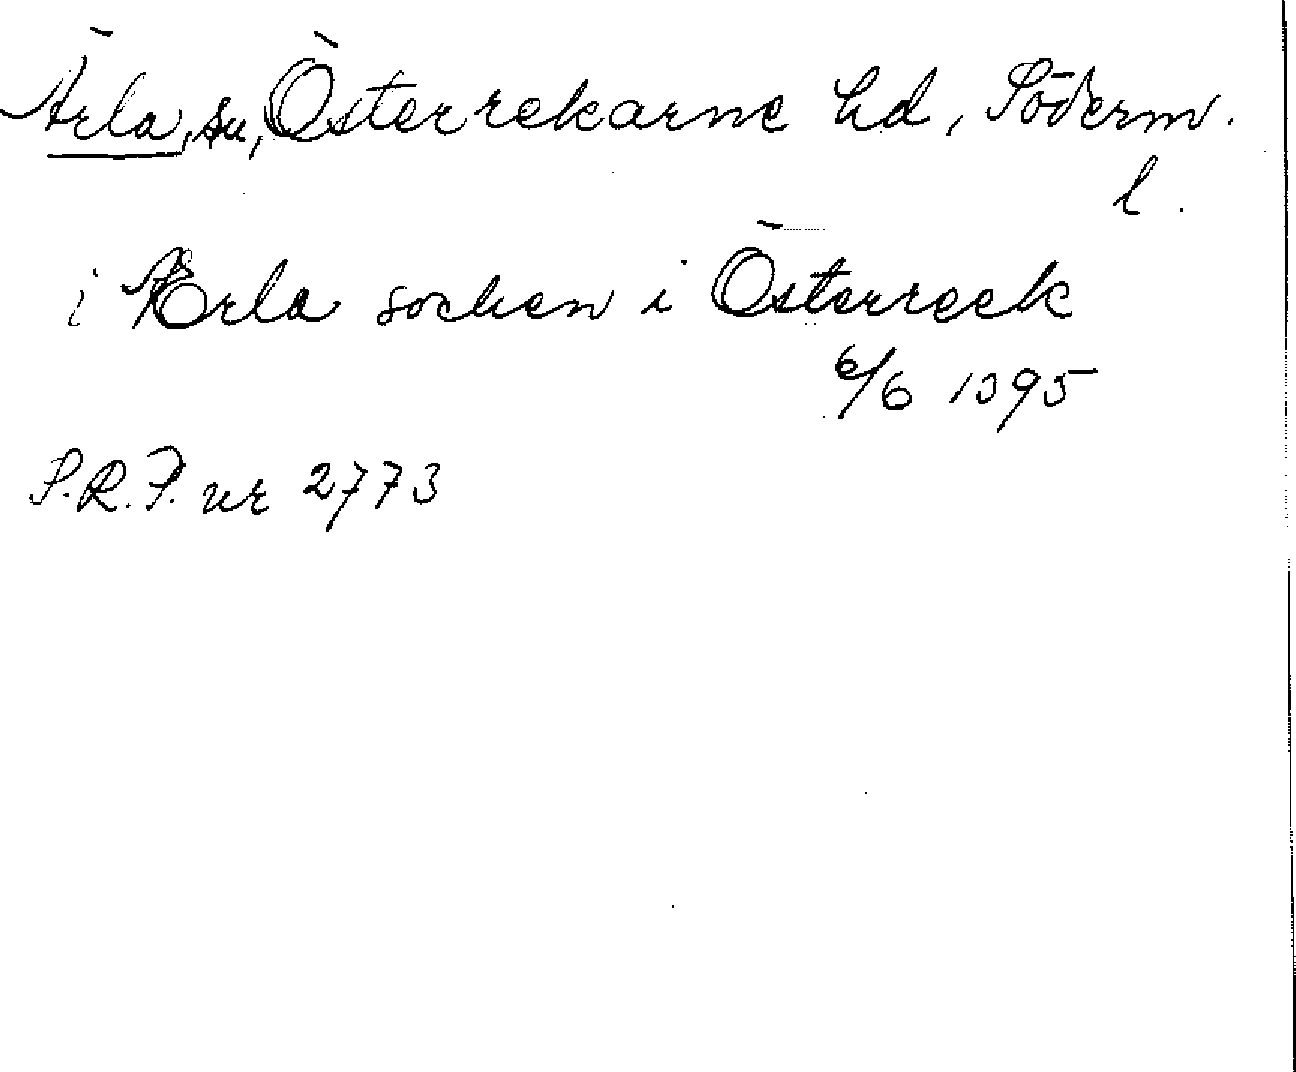 Ärla, sn, Österrekarne hd, Söderm.
l.
i Ærla sochen i Österreek
6/6 1395
S.R.P. nr 2773